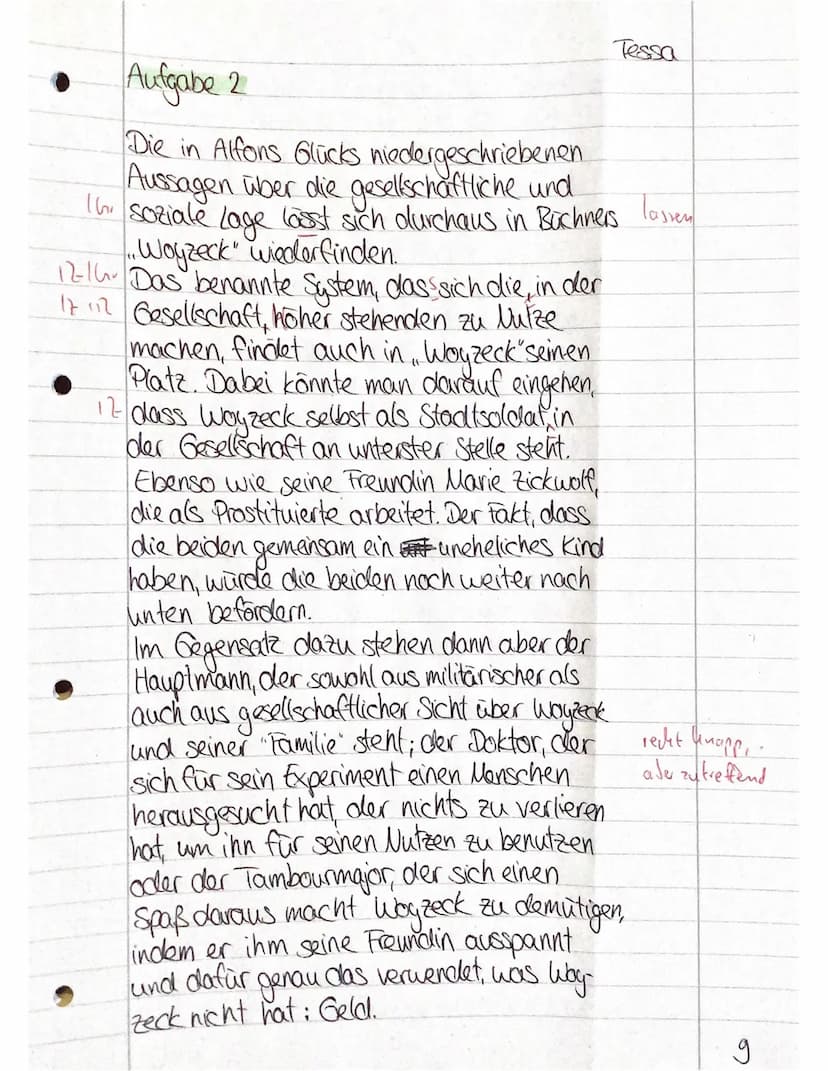 Tessa
Aufgabe 2
Die in Alfons Glücks niedergeschriebenen
Aussagen über die gesellschaftliche und
1Gr soziale Lage lässt sich durchaus in Büchners lassen
„Woyzeck" wiederfinden.
Das benannte System, dass sich die, in der
Gesellschaft, höher stehenden zu Nutze
machen, findet auch in „Woyzeck" seinen
Platz. Dabei könnte man darauf eingehen,
dass Woyzeck selbst als Stadtsoldat, in
der Gesellschaft an unterster Stelle steht.
Ebenso wie seine Freundin Marie Zickwolf,
die als Prostituierte arbeitet. Der Fakt, dass
die beiden gemeinsam ein uneheliches Kind
haben, würde die beiden noch weiter nach
unten befördern.
Im Gegensatz dazu stehen dann aber der
Hauptmann, der sowohl aus militärischer als
auch aus gesellschaftlicher Sicht über Woyzeck
und seiner "Familie" steht; der Doktor, der recht knapp,
sich für sein Experiment einen Menschen aber zutreffend
herausgesucht hat, der nichts zu verlieren
hat, um ihn für seinen Nutzen zu benutzen
oder der Tambourmajor, der sich einen
Spaß daraus macht Woyzeck zu demütigen,
indem er ihm seine Freundin ausspannt
und dafür genau das verwendet, was Woy-
zeck nicht hat: Geld.
9